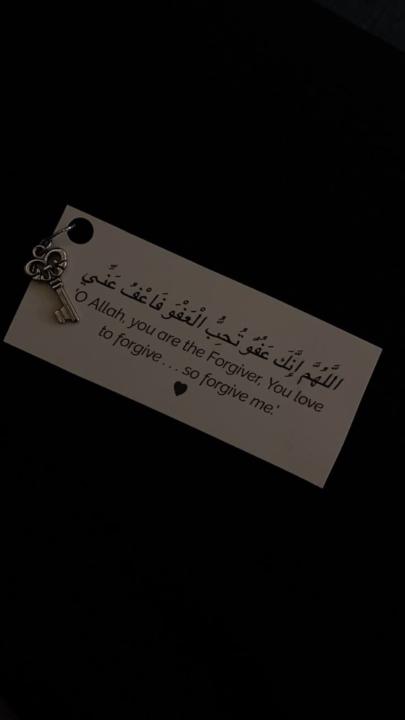 اللَّهُمَّ إِنَّكَ عَفُوٌّ تُحِبُّ الْعَفْوَ فَاعْفُ عَنِّي
'O Allah, you are the Forgiver, You love
to forgive . . . so forgive me.'